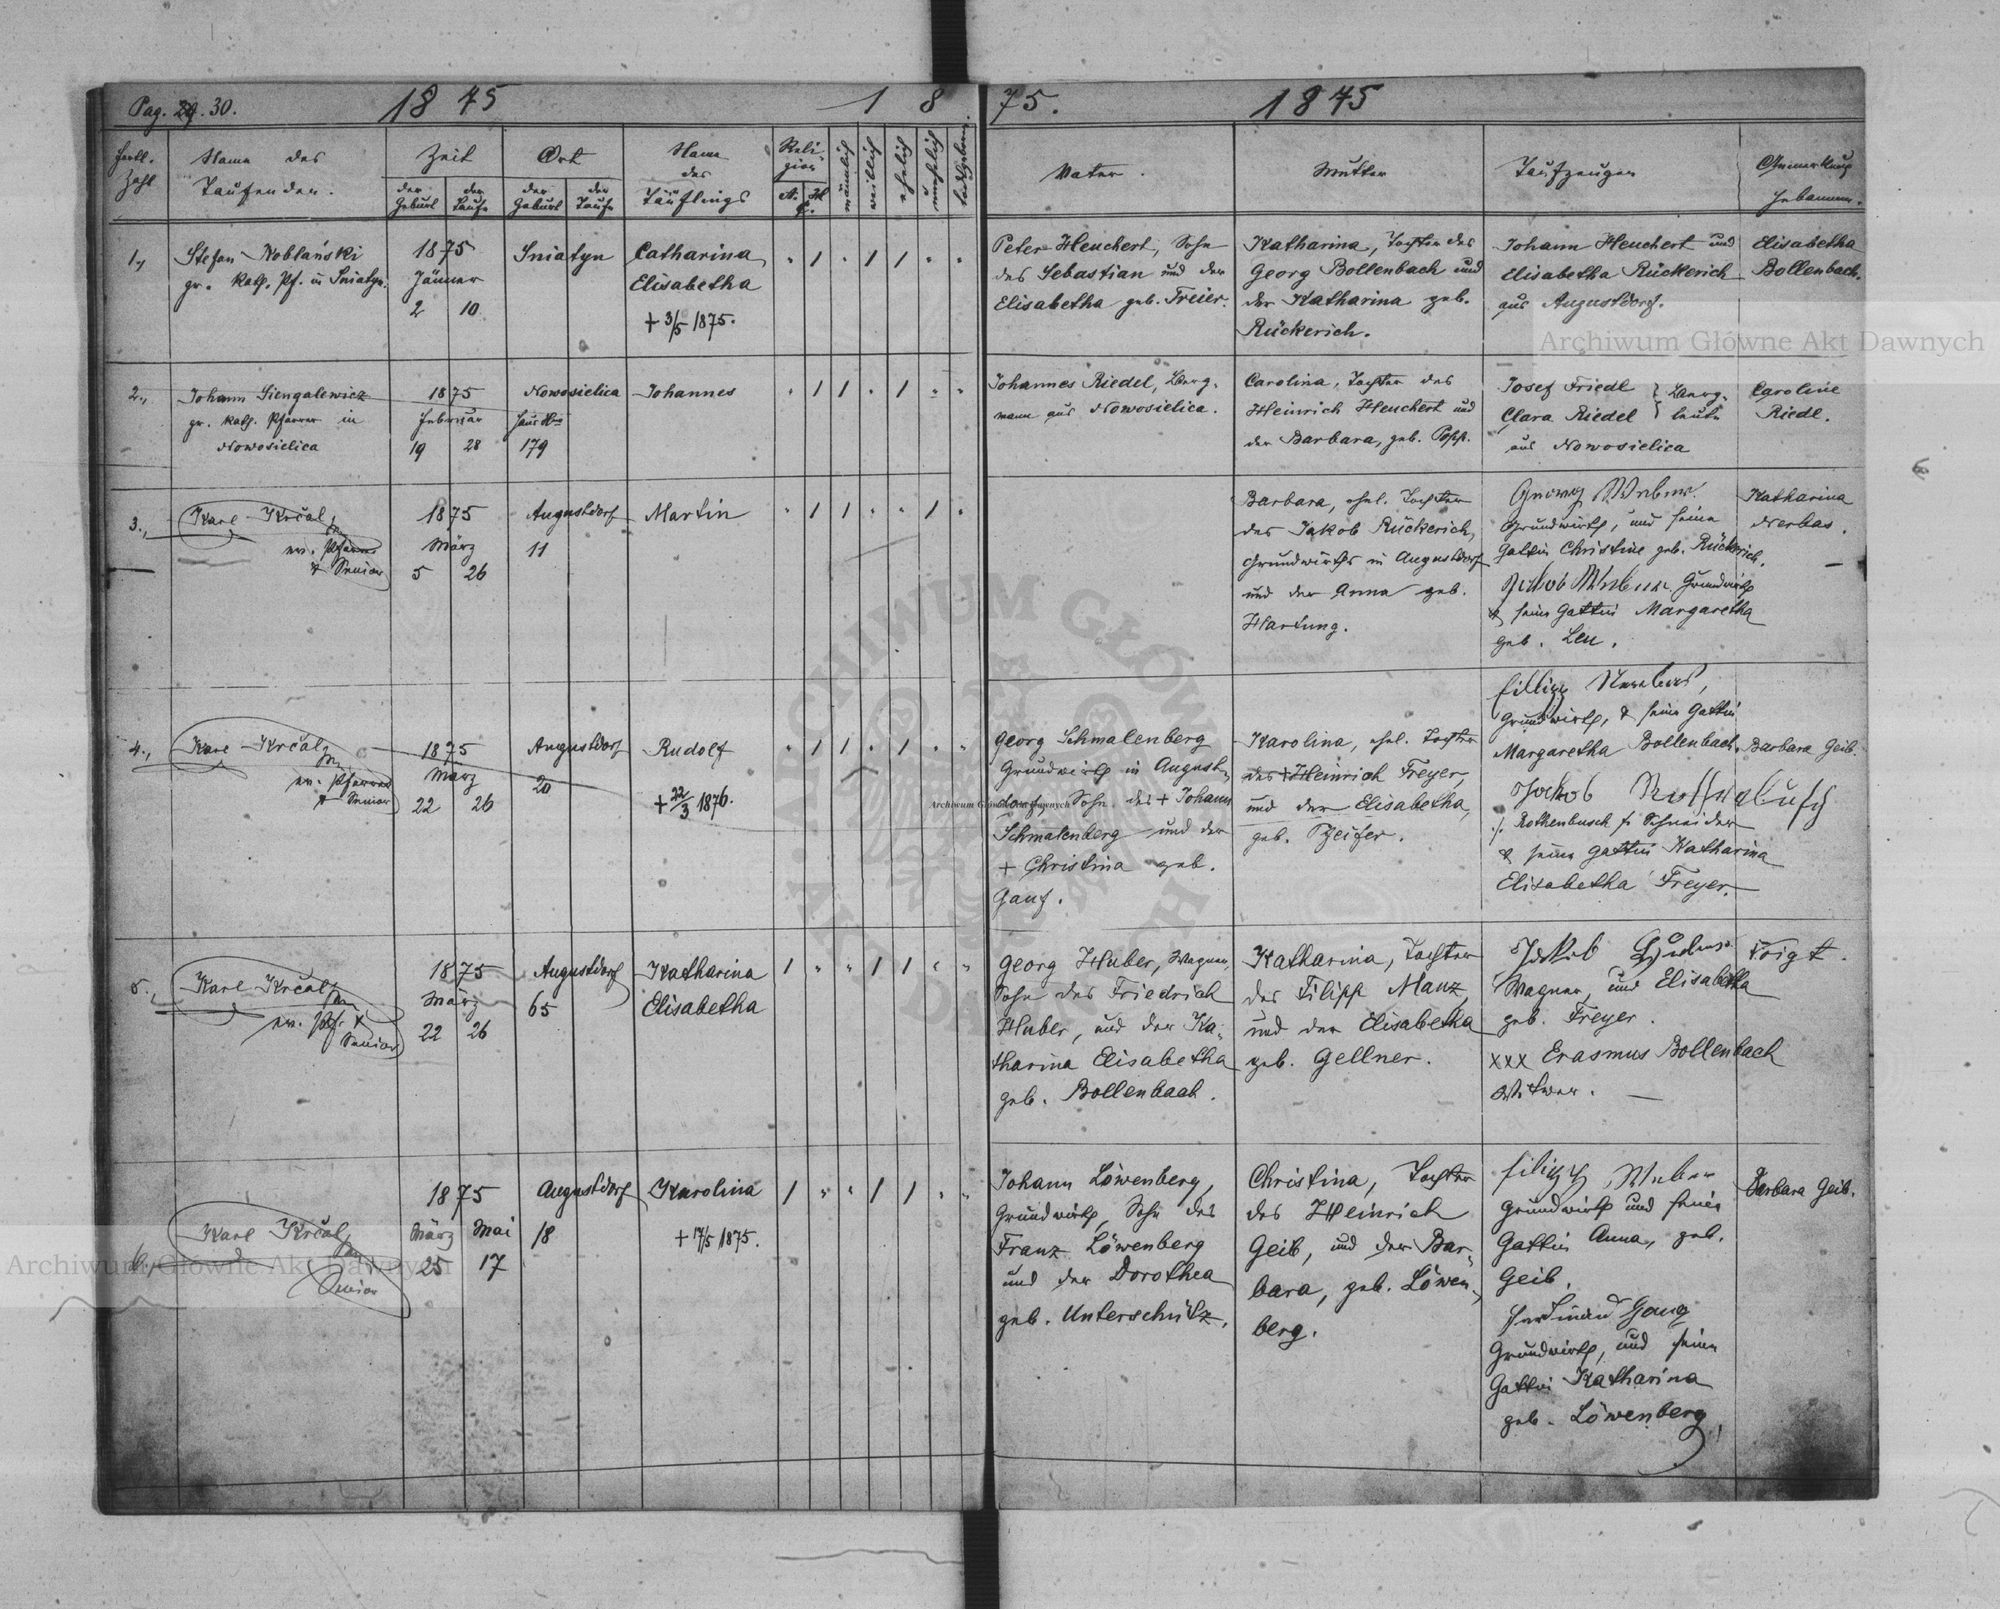 Pag. 30.
1875
1 8
75.
1875
Fortl. Zahl
Name des Taufenden.
Zeit
der Geburt
der Taufe
Ort
der Geburt
der Taufe
Name des Täuflings
Religion
A. H.
C.
männlich
weiblich
ehelich
unehelich
todtgeboren
Vater.
Mutter
Taufzeugen
Anmerkung
Hebamme.
1.,
Stefan Noblański
gr. kath. Pf. in Sniatyn.
1875
Jänner
2 10
Sniatyn
Catharina,
Elisabetha
+ 3/5 1875.
Peter Heuchert, Sohn
des Sebastian und der
Elisabetha geb. Freier.
Katharina, Tochter des
Georg Bollenbach und
der Katharina geb.
Rückerich.
Johann Heuchert und
Elisabetha Rückerich
aus Augustdorf.
Elisabetha
Bollenbach.
2.,
Johann Siengalewicz
gr. kath. Pfarrer in
Nowosielica
1875
Februar
19 28
Nowosielica
Haus No
179
Johannes
Johannes Riedel, Berg-
mann aus Nowosielica.
Carolina, Tochter des
Heinrich Heuchert und
der Barbara, geb. Popp.
Josef Friedl
Clara Riedel } Berg-
leute
aus Nowosielica
Caroline
Riedl.
3.,
Karl Krčal,
ev. Pfarrer
& Senior
1875
März
5 26
Augustdorf
11
Martin
Barbara, ehel. Tochter
des Jakob Rückerich,
Grundwirths in Augustdorf
und der Anna geb.
Hartung.
Georg Weber.
Grundwirth, und seine
Gattin Christine geb. Rückerich.
Jakob Weber Grundwirth
& seine Gattin Margaretha
geb. Leu.
Katharina
Nerbas.
4.,
Karl Krčal,
ev. Pfarrer
& Senior
1875
März
22 26
Augustdorf
20
Rudolf
+ 22/3 1876.
Georg Schmalenberg
Grundwirth in August-
dorf, Sohn des + Johann
Schmalenberg und der
+ Christina geb.
Ganz.
Karolina, ehel. Tochter
des + Heinrich Freyer,
und der Elisabetha,
geb. Pfeifer.
Filipp Nerbas,
Grundwirth, & seine Gattin
Margaretha Bollenbach.
Jakob Rothenbusch
/. Rothenbusch ./ Schneider
& seine Gattin Katharina
Elisabetha Freyer.
Barbara Geib.
5.,
Karl Krčal,
ev. Pf. &
Senior
1875
März
22 26
Augustdorf
65
Katharina
Elisabetha
Georg Huber, Wagner,
Sohn des Friedrich
Huber, und der Ka-
tharina Elisabetha
geb. Bollenbach.
Katharina, Tochter
des Filipp Manz
und der Elisabetha
geb. Gellner.
Jakob Huber
Wagner und Elisabetha
geb. Freyer.
xxx Erasmus Bollenbach
Witwer.
Voigt.
6.,
Karl Krčal,
Senior
1875
März Mai
25 17
Augustdorf
18
Karolina
+ 17/5 1875.
Johann Löwenberg,
Grundwirth, Sohn des
Franz Löwenberg
und der Dorothea
geb. Unterschütz.
Christina, Tochter
des Heinrich
Geib, und der Bar-
bara, geb. Löwen-
berg.
Filipp Weber
Grundwirth und seine
Gattin Anna, geb.
Geib.
Ferdinand Ganz
Grundwirth, und seine
Gattin Katharina
geb. Löwenberg.
Barbara Geib.
Archiwum Główne Akt Dawnych
Archiwum Główne Akt Dawnych
Archiwum Główne Akt Dawnych
ARCHIWUM GŁÓWNE AKT DAWNYCH